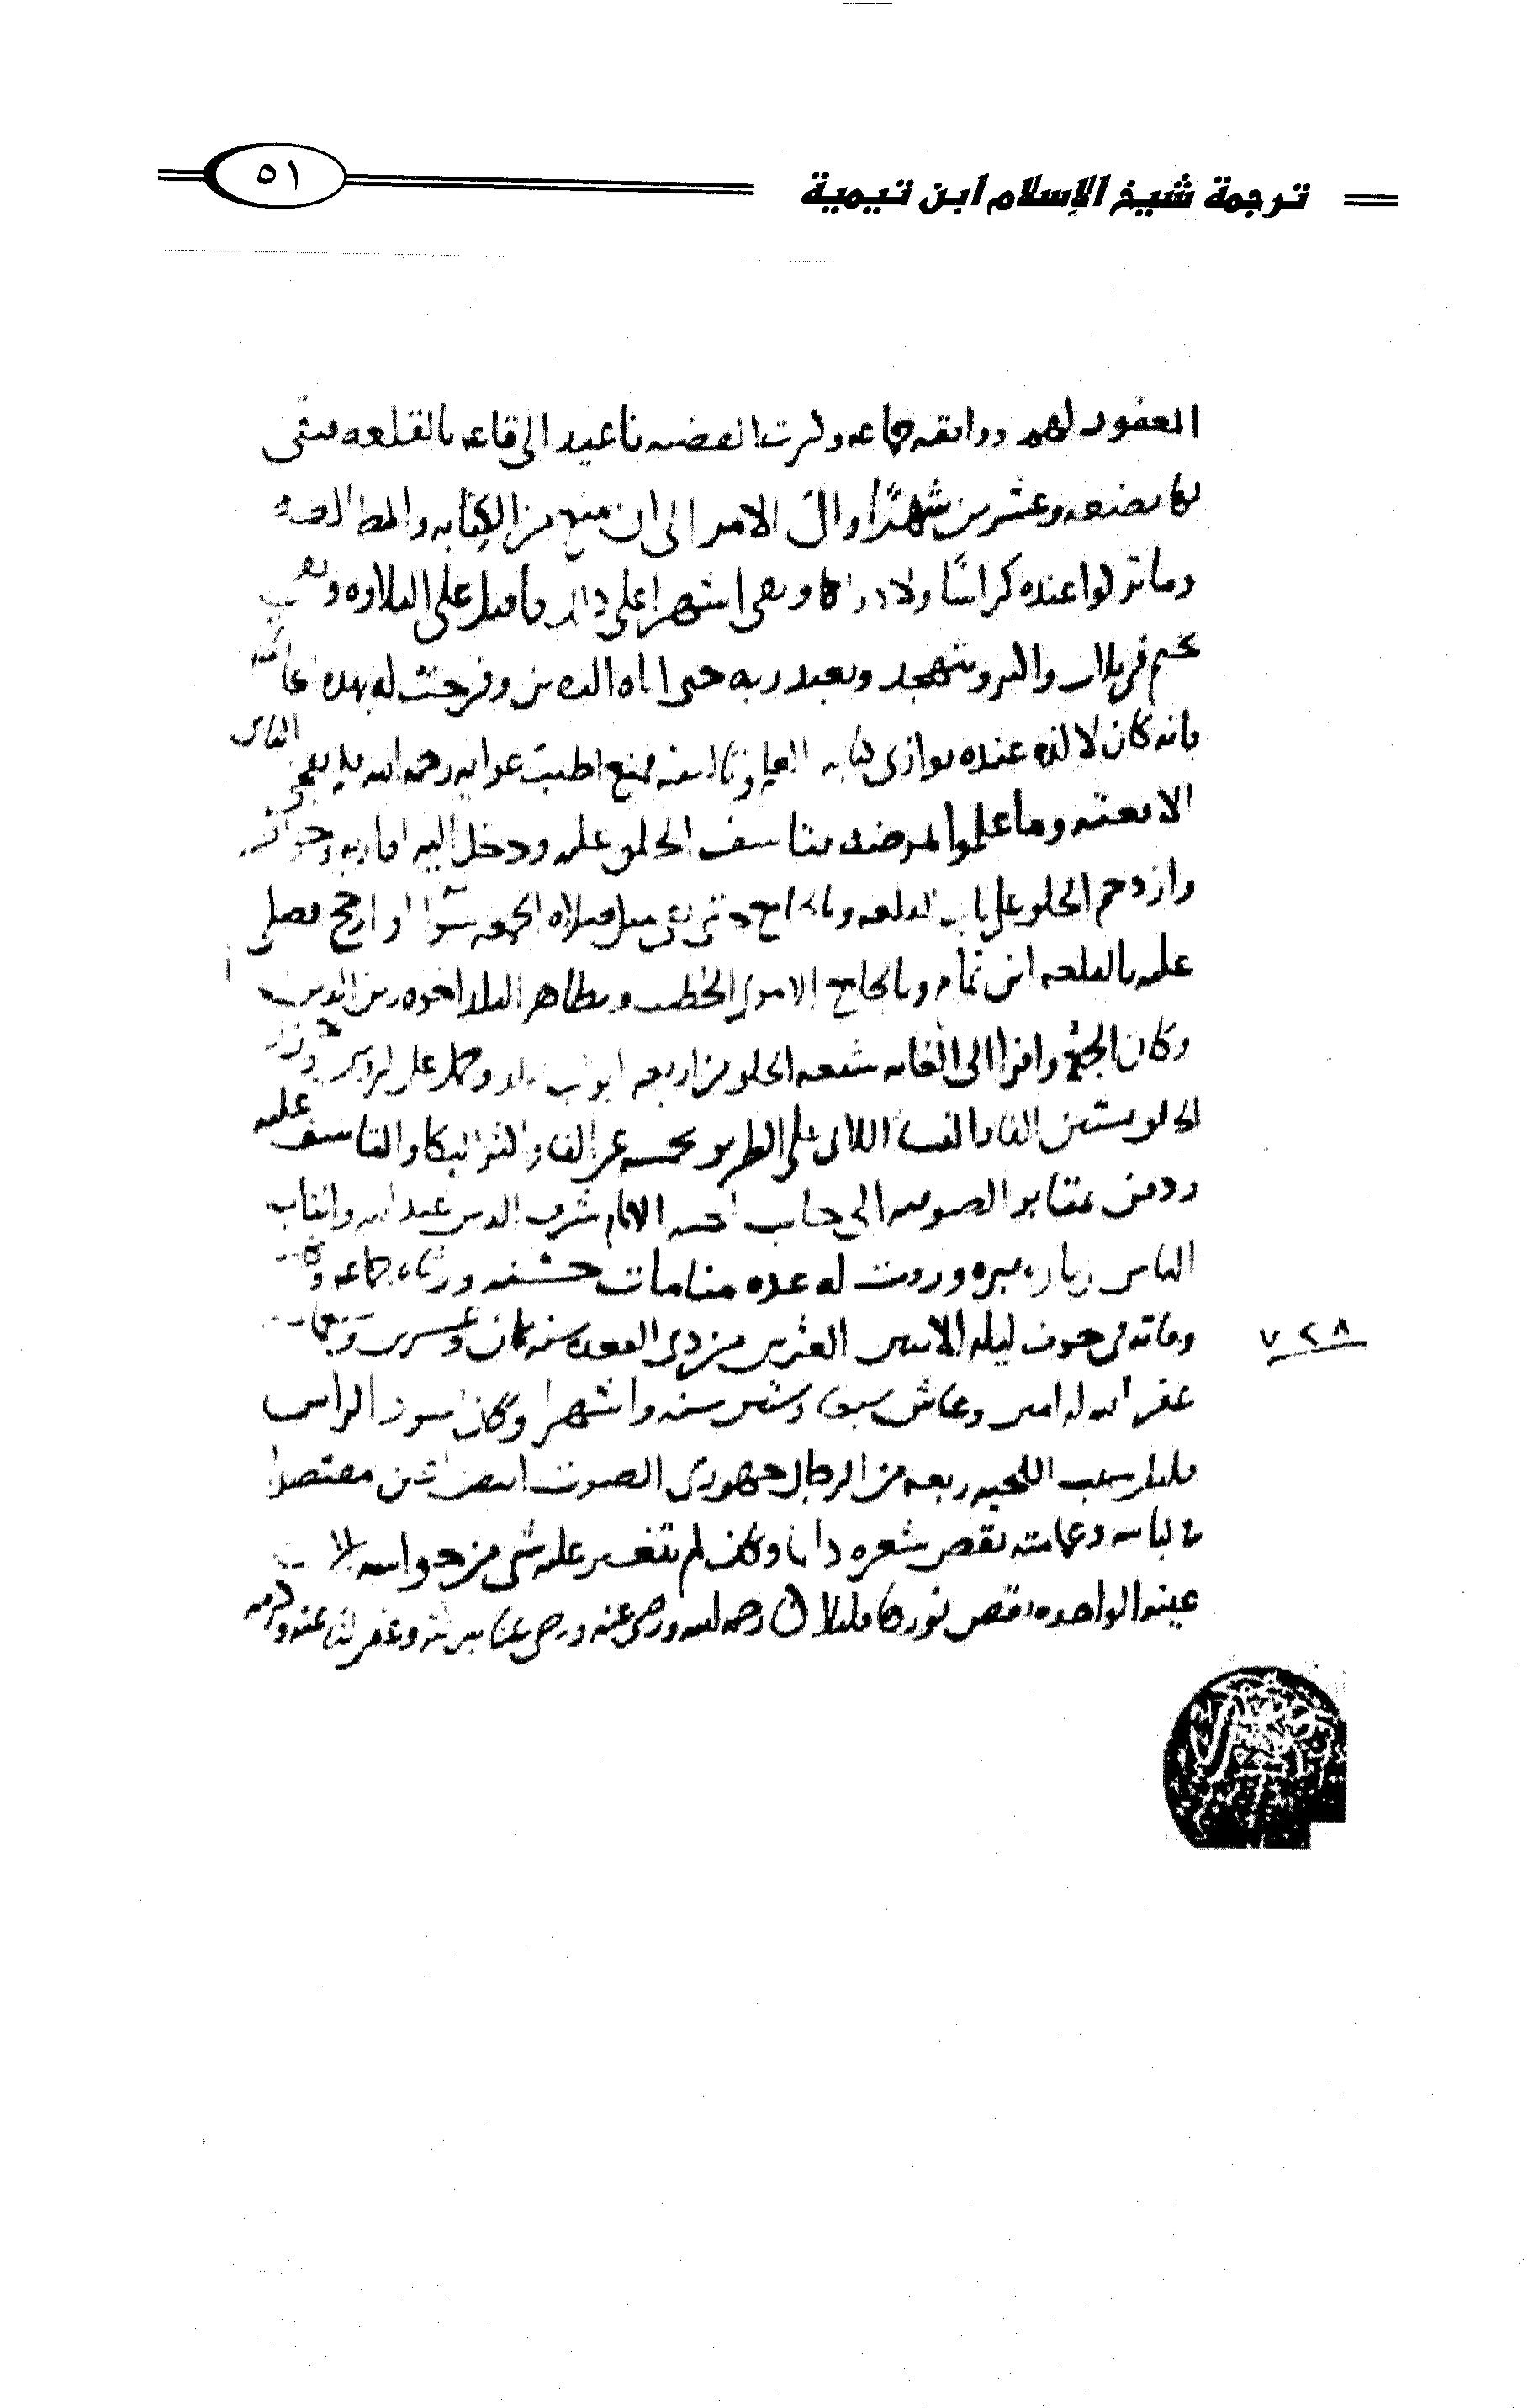 ترجمة شيخ الإسلام ابن تيمية
٥١
المعقود لهم ووافقه جماعه وكبرت القضيه فاعيد الى قاعه بالقلعه فبقى
بها بضعه وعشرين شهرًا وال الامر الى ان منع من الكتابه والمطالعه
وما تركوا عنده كراسًا ولا دواة وبقى اشهرا على ذلك فاقبل على التلاوه وبقى
يختم فى ثلاث واكثر ويتهجد ويعبد ربه حتى اتاه اليقين وفرحت له بهذه الخاتمه
فانه كان لا لذه عنده توازى كتابه العلم وتاليفه فمنع اطيب عوايده رحمه الله فلم يفجى الناس
الا نعيه وما علموا بمرضه فتاسف الخلق عليه ودخل اليه اقاربه وخواصه
وازدحم الخلق على باب القلعه وبالجامع حتى بقى مثل صلاه الجمعه سوا او ارجح فصلى
عليه بالقلعه ابن تمام وبالجامع الاموى الخطيب وبظاهر البلد اخوه زين الدين
وكان الجمع وافرا الى الغايه شيعه الخلق من اربعه ابواب البلد وحمل على الروس وحزر
الخلق بستين الفا والنسا اللاتى على الطريق بخمسه عشر الفا وكثر البكا والتاسف عليه
ودفن بمقابر الصوفيه الى جانب اخيه الامام شرف الدين عبد الله وانتاب
الناس زياره قبره وروىت له عده منامات حسنه ورثاه جماعه وكانت
وفاته فى جوف ليله الاثنين العشرين من ذى القعده سنه ثمان وعشرين وسبعمايه
٧٢٨
غفر الله له امين وعاش سبعا وستين سنه واشهرا وكان اسود الراس
قليل شيب اللحيه ربعه من الرجال جهورى الصوت ابيض اعين مقتصدا
فى لباسه وعمامته يقص شعره دايما وكان لم يتغير عليه شى من حواسه الا ان
عينه الواحده نقص نورها قليلا رحمه الله ورضى عنه ورضى عنا ببركته وغفر لنا بمنه وكرمه